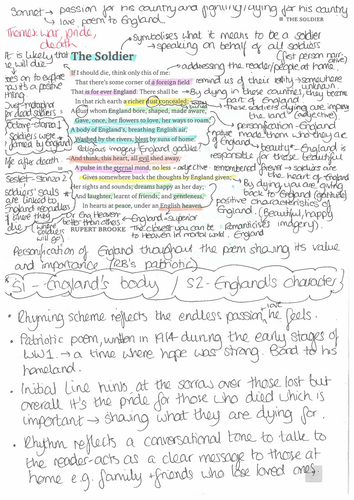 Sonnet → passion for his country and fighting/dying for his country
↳ love poem to England
THE SOLDIER
Themes: war, pride, death
→ Symbolises what it means to be a soldier
→ speaking on behalf of all soldiers
The Soldier
(first person narrative)
It is likely that he will die
→ addressing the reader/people at home
If I should die, think only this of me:
That there's some corner of a foreign field
remind us of their reality → somewhere unknown
That is for ever England. There shall be
By dying in these countries, they become part of England
In that rich earth a richer dust concealed;
These soldiers dying are improving the land (adjective)
A dust whom England bore, shaped, made aware,
personification - England
Gave, once, her flowers to love, her ways to roam,
made them who they are
A body of England's, breathing English air,
Washed by the rivers, blest by suns of home.
beauty - England is responsible for these beautiful
Religious imagery England godlike
And think, this heart, all evil shed away,
life after death
A pulse in the eternal mind, no less
adjective - remembered forever
soldiers are the heart of England
Gives somewhere back the thoughts by England given;
By dying you are giving back to England (gratitude)
Sestet - Stanza 2
Her sights and sounds; dreams happy as her day;
And laughter, learnt of friends; and gentleness,
positive characteristics of England. (Beautiful, happy
In hearts at peace, under an English heaven.
Romanticises imagery).
soldiers' souls are linked to England regardless of where they die
Our God, Heaven better than others
→ England = superior
RUPERT BROOKE
The closest you can be to Heaven in mortal world. England
Personification of England throughout the poem showing its value
and importance (RB's patriotic)
S1 - England's body / S2 - England's character
• Rhyming scheme reflects the endless passion/love he feels.
• Patriotic poem, written in 1914 during the early stages of
WW1. → a time where hope was strong. Bond to his
homeland.
• Initial line hints at the sorrow over those lost but
overall it's the pride for those who died which is
important → sharing what they are dying for.
• Rhythm reflects a conversational tone to talk to
the reader - acts as a clear message to those at
home e.g. family + friends who lose loved ones.